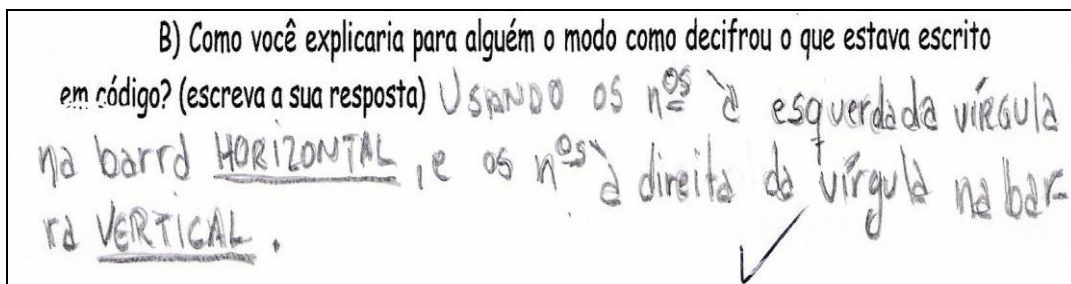 B) Como você explicaria para alguém o modo como decifrou o que estava escrito
em código? (escreva a sua resposta) USANDO OS nºs à esquerda da vírGula
na barra HORIZONTAL, e os nºs à direita da vírgula na bar-
ra VERTICAL.